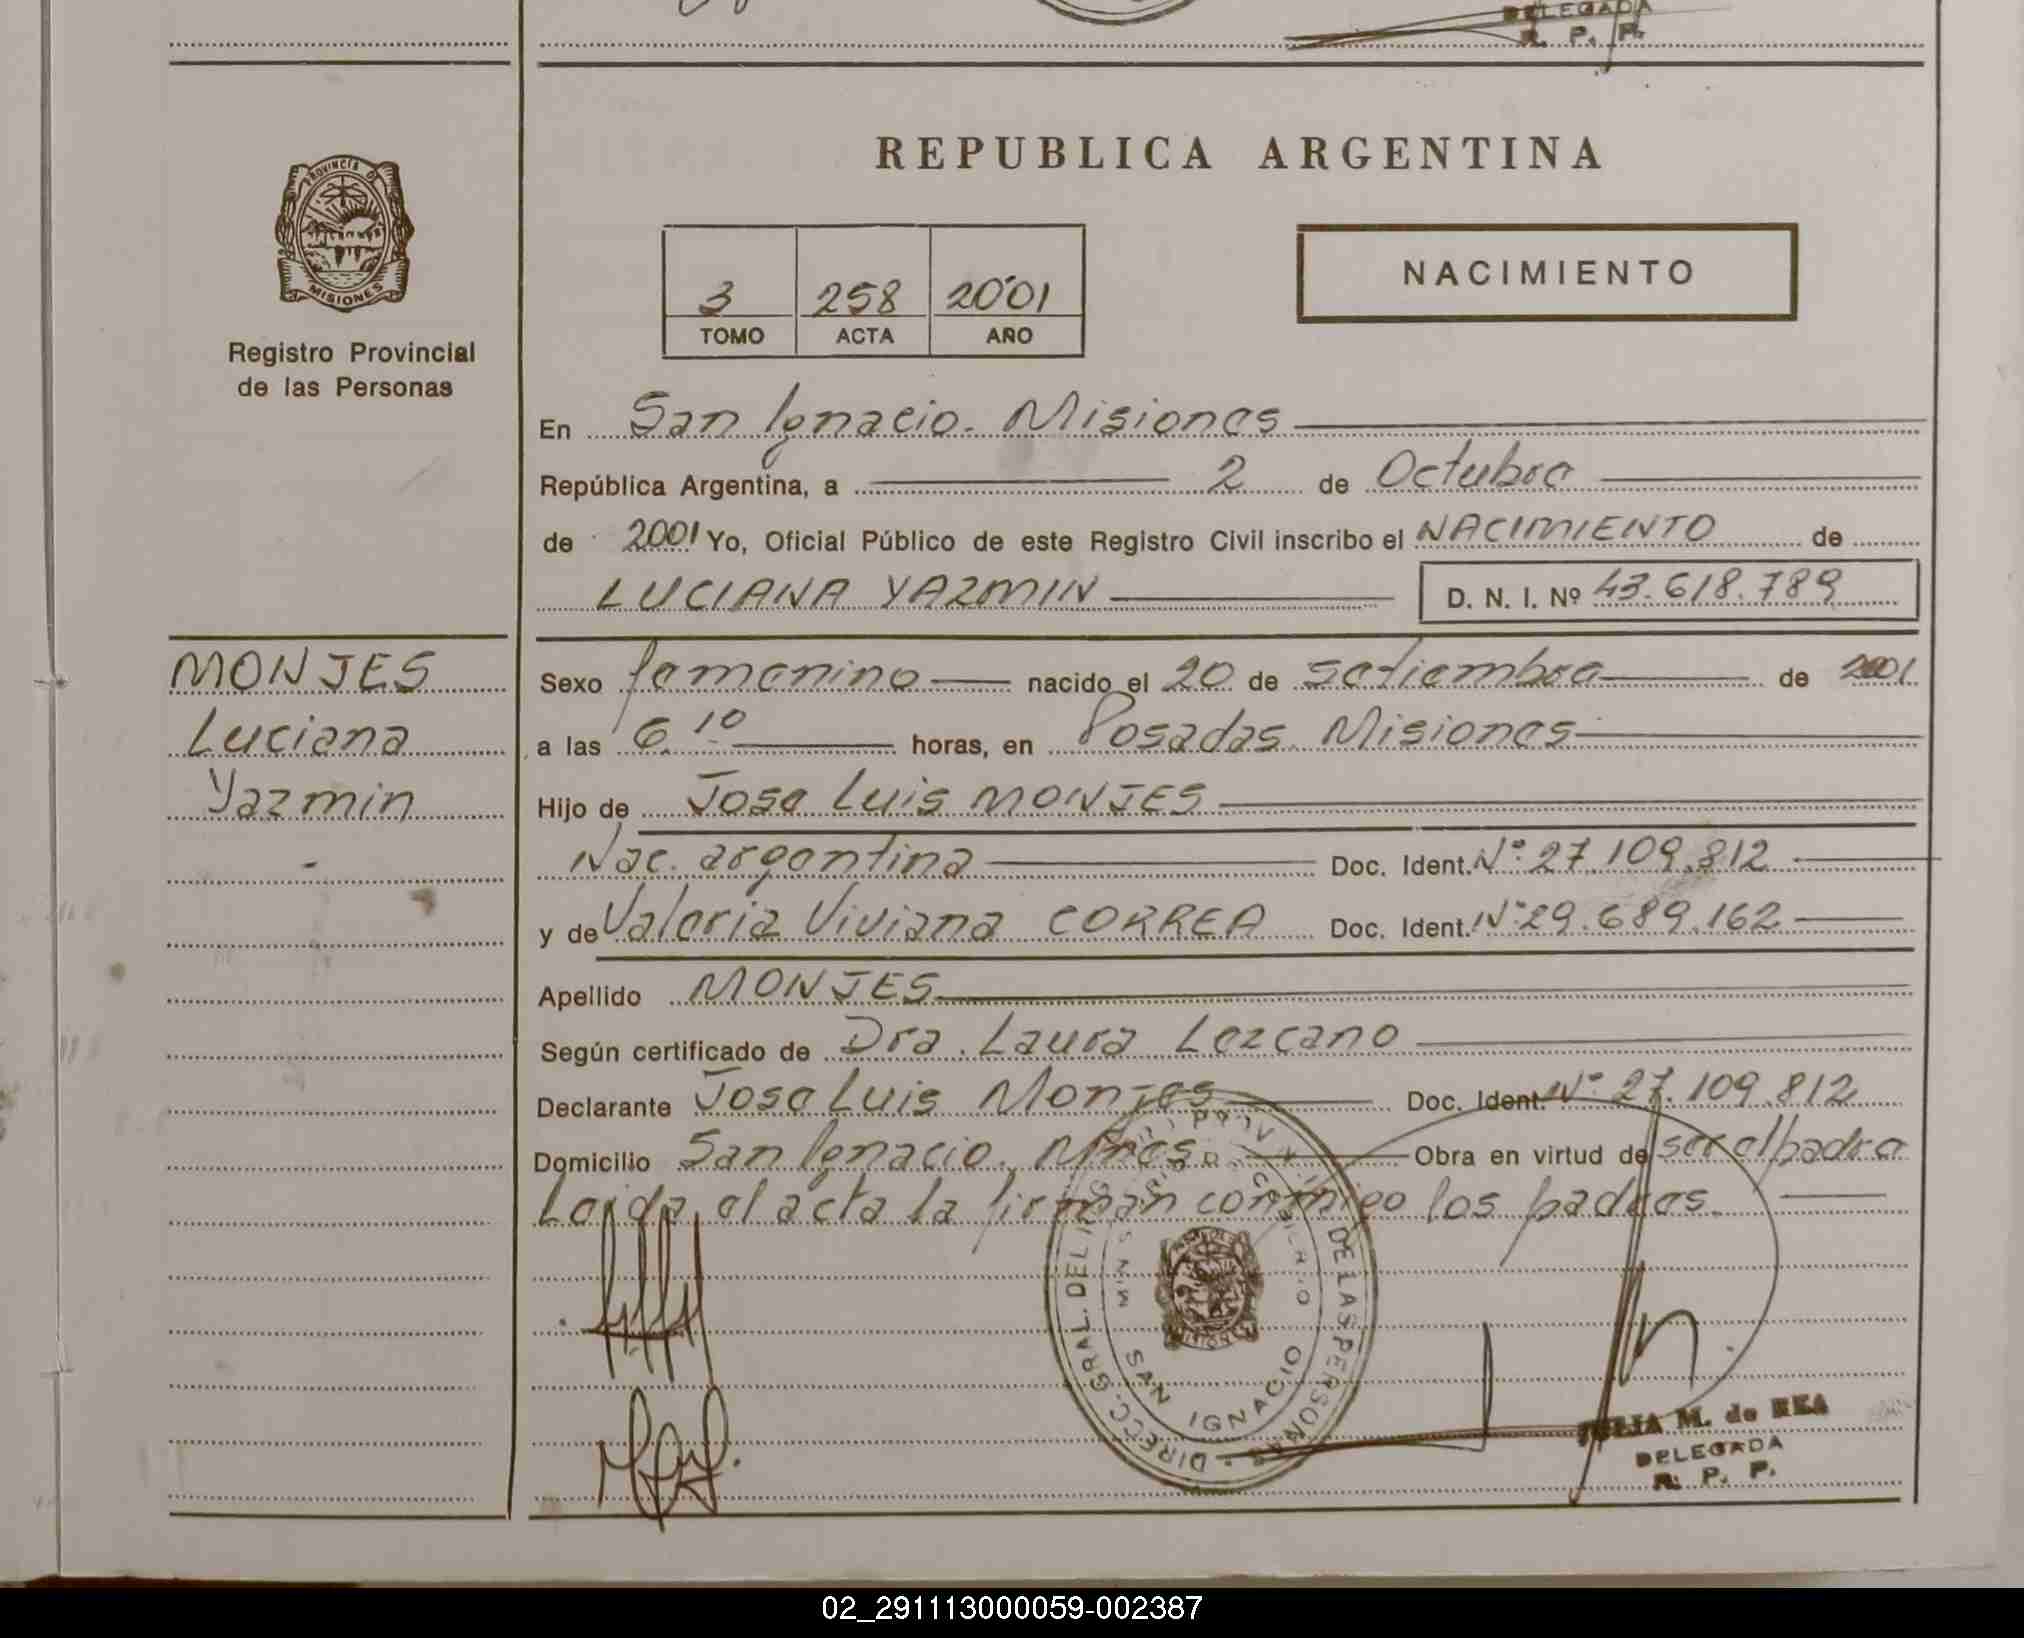 DELEGADA
R. P. P.
REPUBLICA ARGENTINA
PROVINCIA DE
MISIONES
Registro Provincial
de las Personas
3 258 2001
TOMO ACTA AÑO
NACIMIENTO
En San Ignacio. Misiones
República Argentina, a 2 de Octubre
de 2001 Yo, Oficial Público de este Registro Civil inscribo el NACIMIENTO de
LUCIANA YAZMIN D. N. I. Nº 43.618.789
MONJES
Luciana
Yazmin
Sexo femenino nacido el 20 de setiembre de 2001
a las 6.10 horas, en Posadas. Misiones
Hijo de Jose Luis MONJES
Nac. argentina Doc. Ident. Nº: 27.109.812
y de Valeria Viviana CORREA Doc. Ident. Nº: 29.689.162
Apellido MONJES
Según certificado de Dra. Laura Lezcano
Declarante Jose Luis Monjes Doc. Ident. Nº 27.109.812
Domicilio San Ignacio. Mnes. Obra en virtud de ser el padre
Leida el acta la firman conmigo los padres.
DIRECC. GRAL. DEL DE LAS PERSONAS
SAN IGNACIO
MISIONES
M. de REA
DELEGADA
R. P. P.
02_291113000059-002387